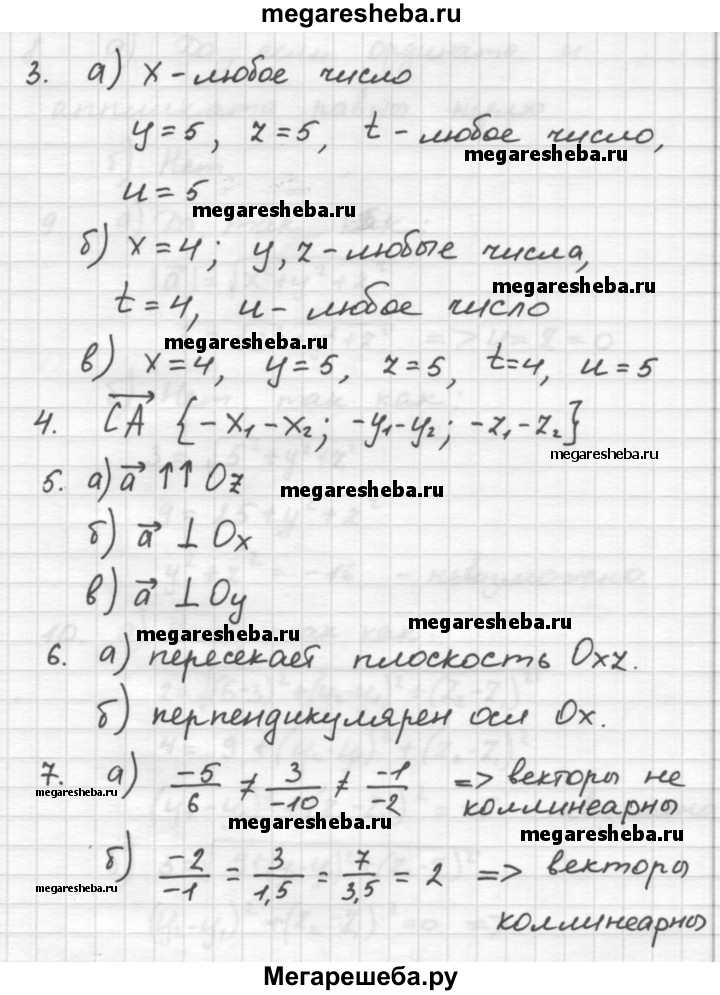 megaresheba.ru
3. а) x – любое число
y = 5, z = 5, t – любое число,
megaresheba.ru
u = 5
megaresheba.ru
б) x = 4; y, z – любые числа,
megaresheba.ru
t = 4, u – любое число
megaresheba.ru
в) x = 4, y = 5, z = 5, t = 4, u = 5
4. \overrightarrow{CA} {-x₁-x₂; -y₁-y₂; -z₁-z₂}
megaresheba.ru
5. а) \vec{a} ↑↑ Oz
megaresheba.ru
б) \vec{a} ⊥ Ox
в) \vec{a} ⊥ Oy
megaresheba.ru
megaresheba.ru
6. а) пересекает плоскость Oxz.
б) перпендикулярен оси Ox.
7. а) -5/6 ≠ 3/-10 ≠ -1/-2 => векторы не
megaresheba.ru
коллинеарны
megaresheba.ru
megaresheba.ru
б) -2/-1 = 3/1,5 = 7/3,5 = 2 => векторы
megaresheba.ru
коллинеарны
Мегарешеба.ру